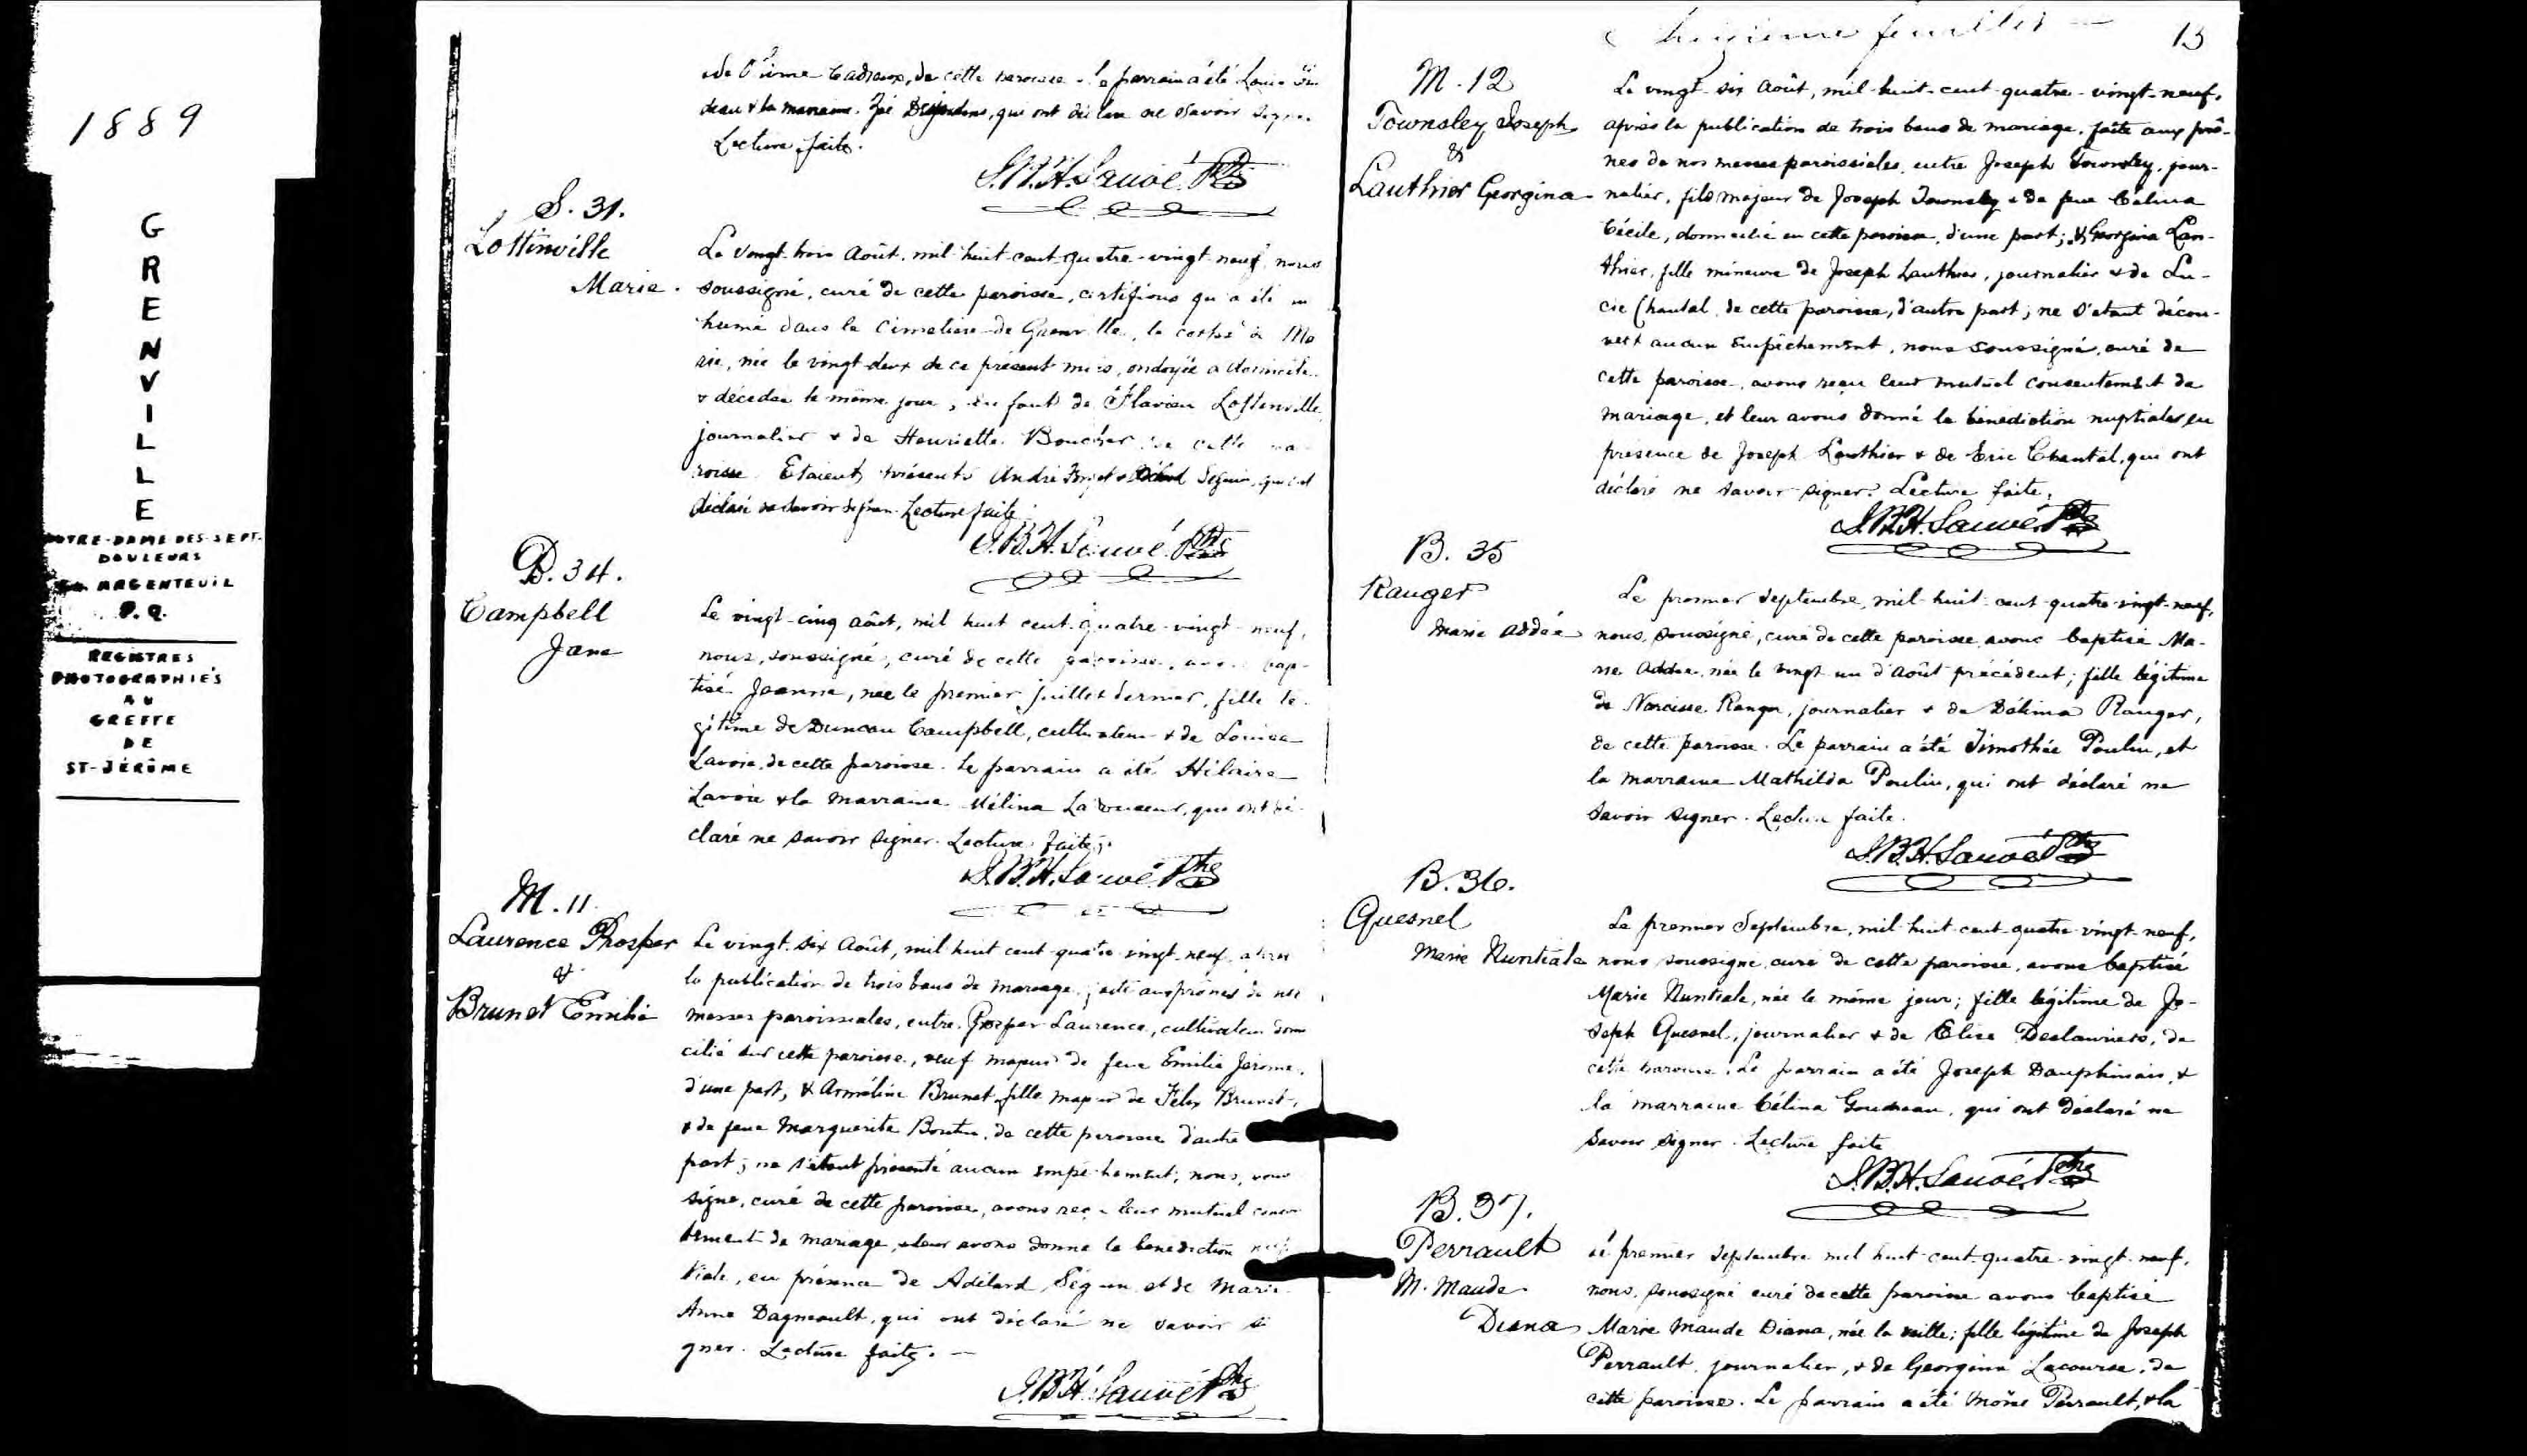 1889
GRENVILLE
NOTRE-DAME-DES-SEPT-
DOULEURS
ARGENTEUIL
P.Q.
REGISTRES
PHOTOGRAPHIÉS
AU
GREFFE
DE
ST-JÉRÔME
de cette paroisse. Le parrain a été Louis
deau & la marraine. Zoé Desjardins, qui ont déclaré ne savoir signer
Lecture faite.
J.B.H. Sauvé Ptre
S. 31.
Lottinville
Marie.
Le vingt-trois Août, mil-huit-cent-quatre-vingt-neuf, nous
soussigné, curé de cette paroisse, certifions qu'a été in
humé dans le Cimetière de Grenville, le corps de Ma
rie, née le vingt-deux de ce présent mois, ondoyée à domicile
& décédée le même jour, enfant de Flavien Lottinville
journalier & de Henriette Boucher de cette pa
roisse. Etaient présents André Forget & Séguin, qui ont
déclaré ne savoir signer. Lecture faite.
J.B.H. Sauvé Ptre
B. 34.
Campbell
Jane
Le vingt-cinq août, mil huit cent-quatre-vingt-neuf,
nous, soussigné, curé de cette paroisse, avons bap-
tisé Jeanne, née le premier juillet dernier, fille lé-
gitime de Duncan Campbell, cultivateur & de Louisa
Lavoie, de cette paroisse. Le parrain a été Hilaire
Lavoie & la marraine Mélina, qui ont dé-
claré ne savoir signer. Lecture faite.
J.B.H. Sauvé Ptre
M. 11.
Laurence Prosper
&
Brunet Emilie
Le vingt-six Août, mil huit cent-quatre vingt-neuf, après
la publication de trois bans de mariage, faite aux prônes de nos
messes paroissiales, entre Prosper Laurence, cultivateur domi
cilié sur cette paroisse, veuf majeur de feue Emilie Jérome,
d'une part, & Arméline Brunet fille majeure de Felix Brunet,
& de feue Marguerite Boutin, de cette paroisse d'autre
part; ne s'étant présenté aucun empêchement, nous, sous
signé, curé de cette paroisse, avons reçu leur mutuel consen
tement de mariage, & leur avons donné la bénédiction nup
tiale, en présence de Adélard Séguin et de Marie
Anne Dagneault, qui ont déclaré ne savoir si
gner. Lecture faite. —
J.B.H. Sauvé Ptre
feuillet — 13
M. 12
Townsley Joseph
&
Lauthier Georgina
Le vingt-six Août, mil-huit-cent-quatre-vingt-neuf,
après la publication de trois bans de mariage, faite aux prô-
nes de nos messes paroissiales, entre Joseph Townsley, jour-
nalier, fils majeur de Joseph Townsley & de feue Célina
Cécile, domicilié en cette paroisse, d'une part; & Georgina Lau-
thier, fille mineure de Joseph Lauthier, journalier & de Lu-
cie Chantal, de cette paroisse, d'autre part; ne s'étant décou-
vert aucun empêchement, nous soussigné, curé de
cette paroisse, avons reçu leur mutuel consentement de
mariage, et leur avons donné la bénédiction nuptiale, en
présence de Joseph Lauthier & de Eric Chantal, qui ont
déclaré ne savoir signer. Lecture faite.
J.B.H. Sauvé Ptre
B. 35
Ranger
Marie Addée
Le premier Septembre, mil-huit-cent-quatre-vingt-neuf,
nous, soussigné, curé de cette paroisse, avons baptisé Ma-
rie Addée, née le vingt-un d'Août précédent; fille légitime
de Narcisse Ranger, journalier & de Délima Ranger,
de cette paroisse. Le parrain a été Timothée Poulin, et
la marraine Mathilda Poulin, qui ont déclaré ne
savoir signer. Lecture faite.
J.B.H. Sauvé Ptre
B. 36.
Quesnel
Marie Nuntiale
Le premier Septembre, mil-huit-cent-quatre-vingt-neuf,
nous soussigné, curé de cette paroisse, avons baptisé
Marie Nuntiale, née le même jour; fille légitime de Jo-
seph Quesnel, journalier & de Elise Deslauriers, de
cette paroisse. Le parrain a été Joseph Dauphinais, &
la marraine Célina Goudreau, qui ont déclaré ne
savoir signer. Lecture faite
J.B.H. Sauvé Ptre
B. 37.
Perrault
M. Maude
Diana
Le premier Septembre mil huit-cent-quatre-vingt-neuf,
nous, soussigné curé de cette paroisse avons baptisé
Marie Maude Diana, née la veille; fille légitime de Joseph
Perrault, journalier, & de Georgina Lacourse, de
cette paroisse. Le parrain a été Moïse Perrault, & la